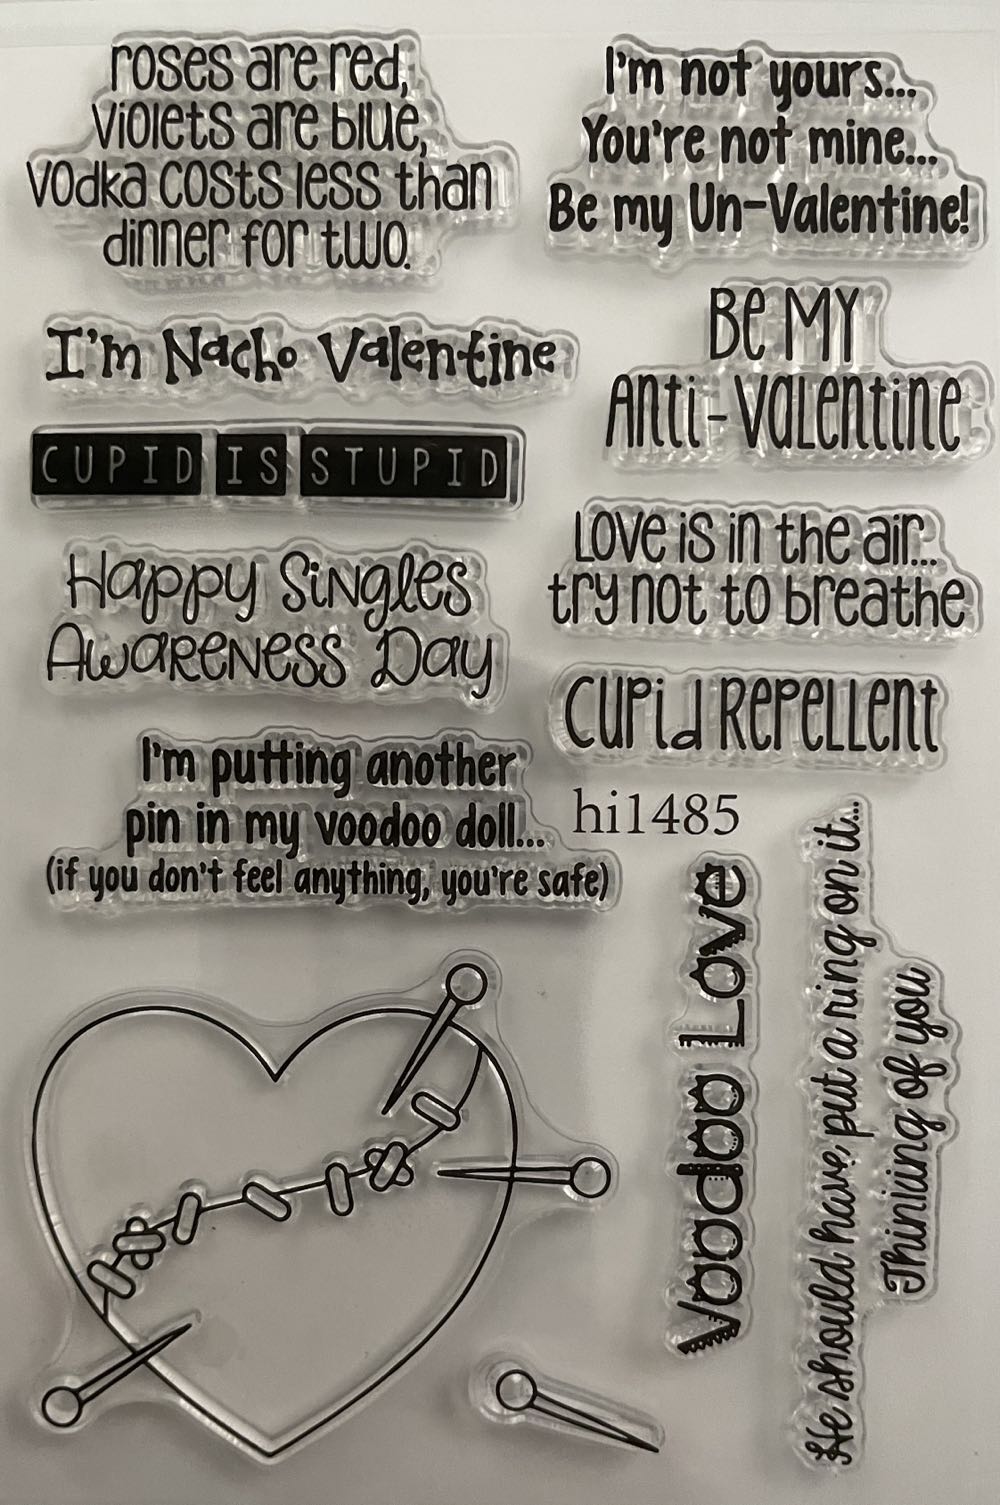 roses are red,
violets are blue,
vodka costs less than
dinner for two.
I'm not yours...
You're not mine...
Be my Un-Valentine!
I'm Nacho Valentine
Be MY
Anti-Valentine
CUPID IS STUPID
Love is in the air...
try not to breathe
Happy Singles
Awareness Day
Cupid Repellent
I'm putting another
pin in my voodoo doll...
(if you don't feel anything, you're safe)
hi1485
Voodoo Love
He should have put a ring on it...
Thinking of you